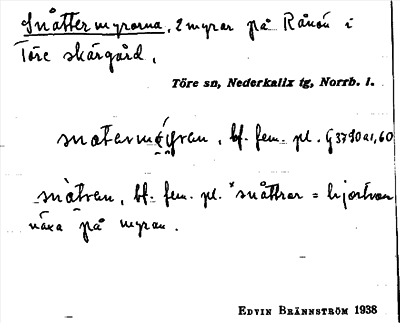 Snåttermyrorna, 2 myrar på Rånön i
Töre skärgård.
Töre sn, Nederkalix tg, Norrb. l.
bf. fem. pl. G3790a1,60
snàtran, bf. fem. pl. *snåttrar = hjortron
växa på myran.
EDVIN BRÄNNSTRÖM 1938